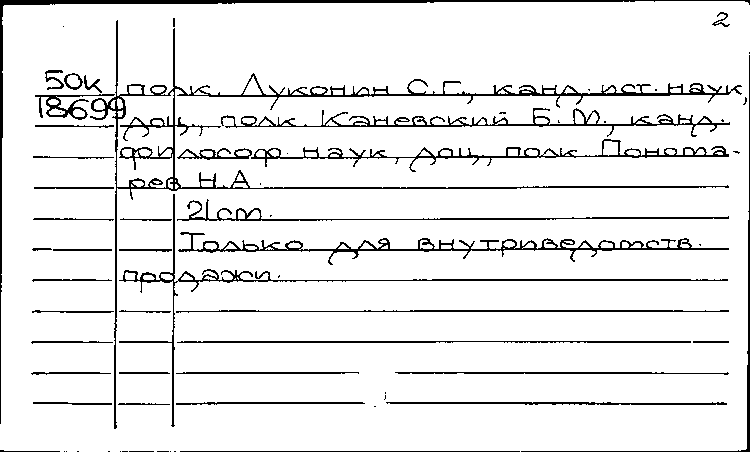 2
50К
18699
полк. Луконин С.Г., канд. ист. наук,
доц., полк. Каневский Б.М., канд.
философ наук, доц., полк Понома-
рев Н.А.
21 cm.
Только для внутриведомств.
продажи.